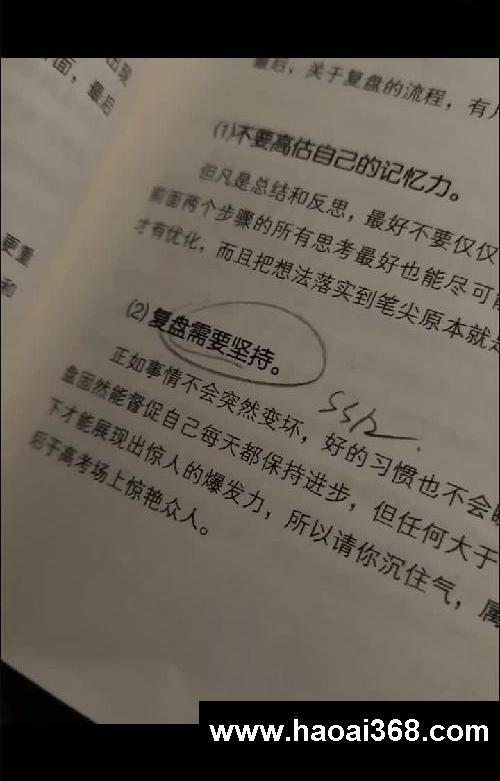 出现
面，最后
更重
和
最后，关于复盘的流程，有
(1)不要高估自己的记忆力。
但凡是总结和反思，最好不要仅仅
前面两个步骤的所有思考最好也能尽可
才有优化，而且把想法落实到笔尖原本就是
(2)复盘需要坚持。
正如事情不会突然变坏，好的习惯也不会
盘固然能督促自己每天都保持进步，但任何大于
下才能展现出惊人的爆发力，所以请你沉住气，属
后于高考场上惊艳众人。
www.haoai368.com